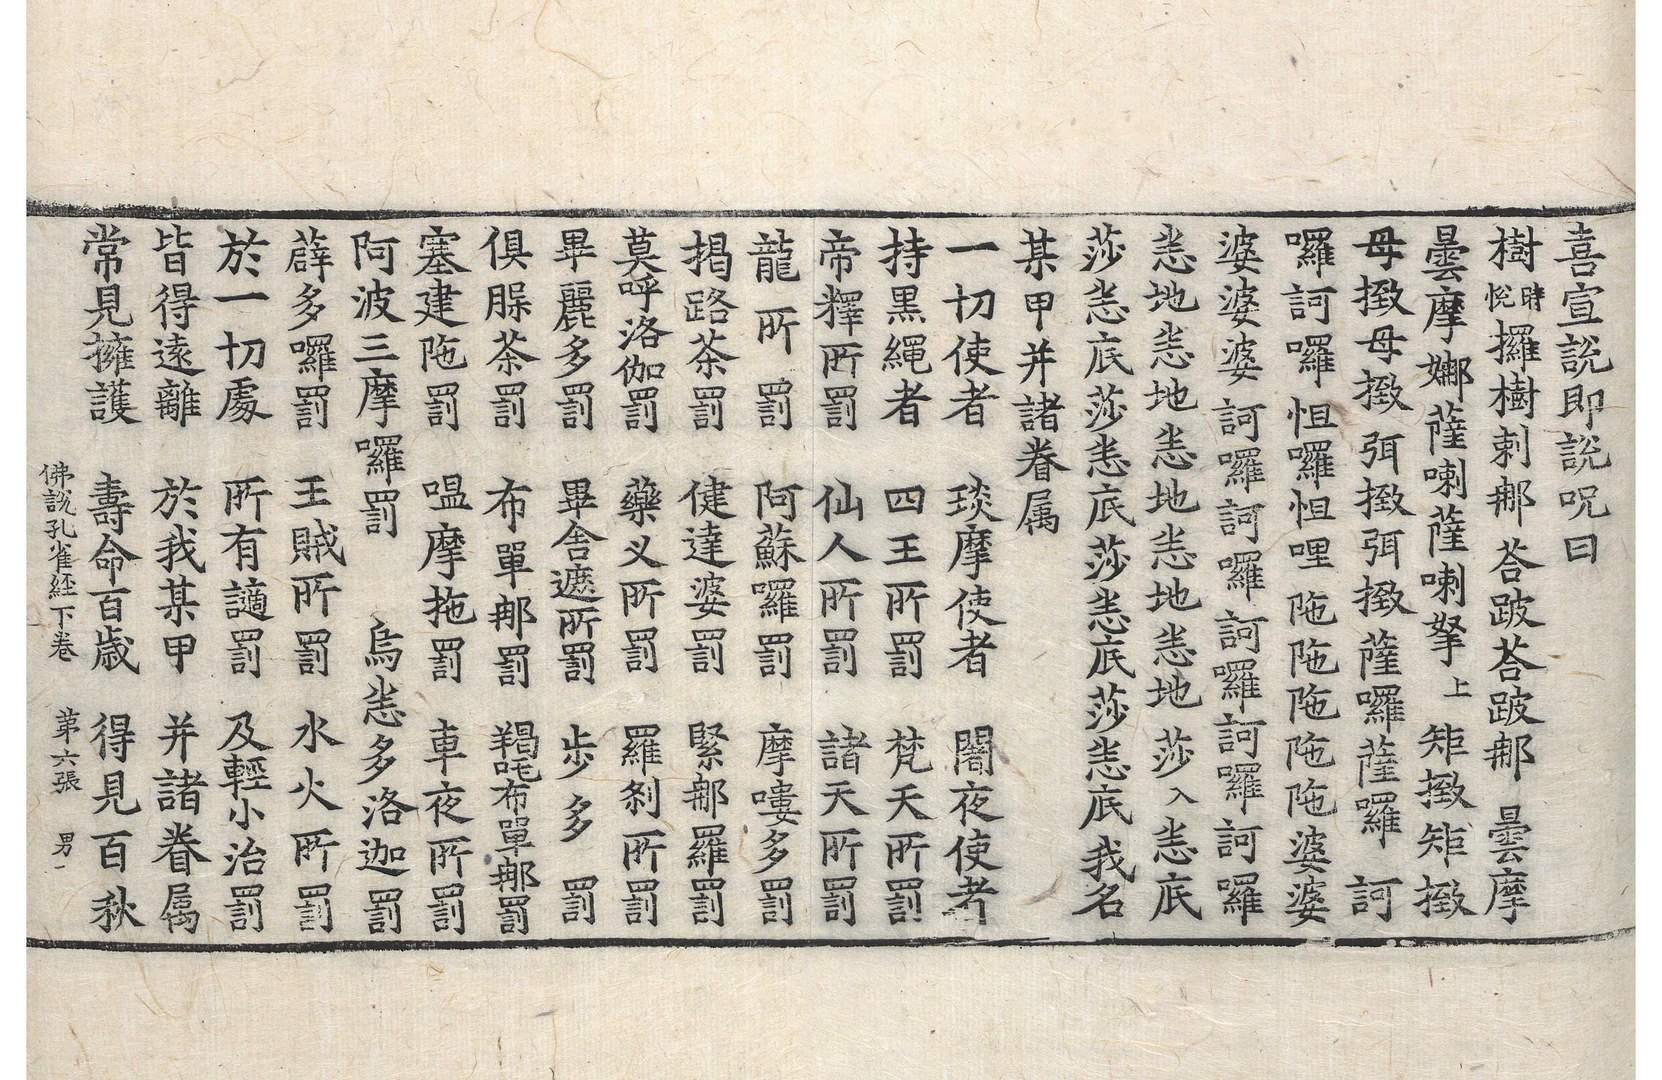 喜宣說即說呪曰
樹時悅攞樹剌䣕荅跛荅跛䣕曇摩
曇摩娜薩喇薩喇拏上矩㨖矩㨖
母㨖母㨖弭㨖弭㨖薩囉薩囉訶
囉訶囉怛囉怛哩陁陁陁陁陁婆婆
婆婆婆訶囉訶囉訶囉訶囉訶囉
恙地恙地恙地恙地恙地莎入恙底
莎恙底莎恙底莎恙底莎恙底我名
某甲并諸眷属
一切使者 琰摩使者 闇夜使者
持黒繩者 四王所罰 梵天所罰
帝釋所罰 仙人所罰 諸天所罰
龍所罰 阿蘇囉罰 摩嘍多罰
揭路茶罰 健達婆罰 緊䣕羅罰
莫呼洛伽罰 藥义所罰 羅刹所罰
畢麗多罰 畢舎遮所罰 步多罰
俱脲茶罰 布單䣕罰 羯吒布單䣕罰
塞建陁罰 嗢摩拖罰 車夜所罰
阿波三摩囉罰 烏恙多洛迦罰
薜多囉罰 王賊所罰 水火所罰
於一切處 所有讁罰 及輕小治罰
皆得遠離 於我某甲 并諸眷属
常見擁護 壽命百歲 得見百秋
佛說孔雀経下卷 苐六張 男一